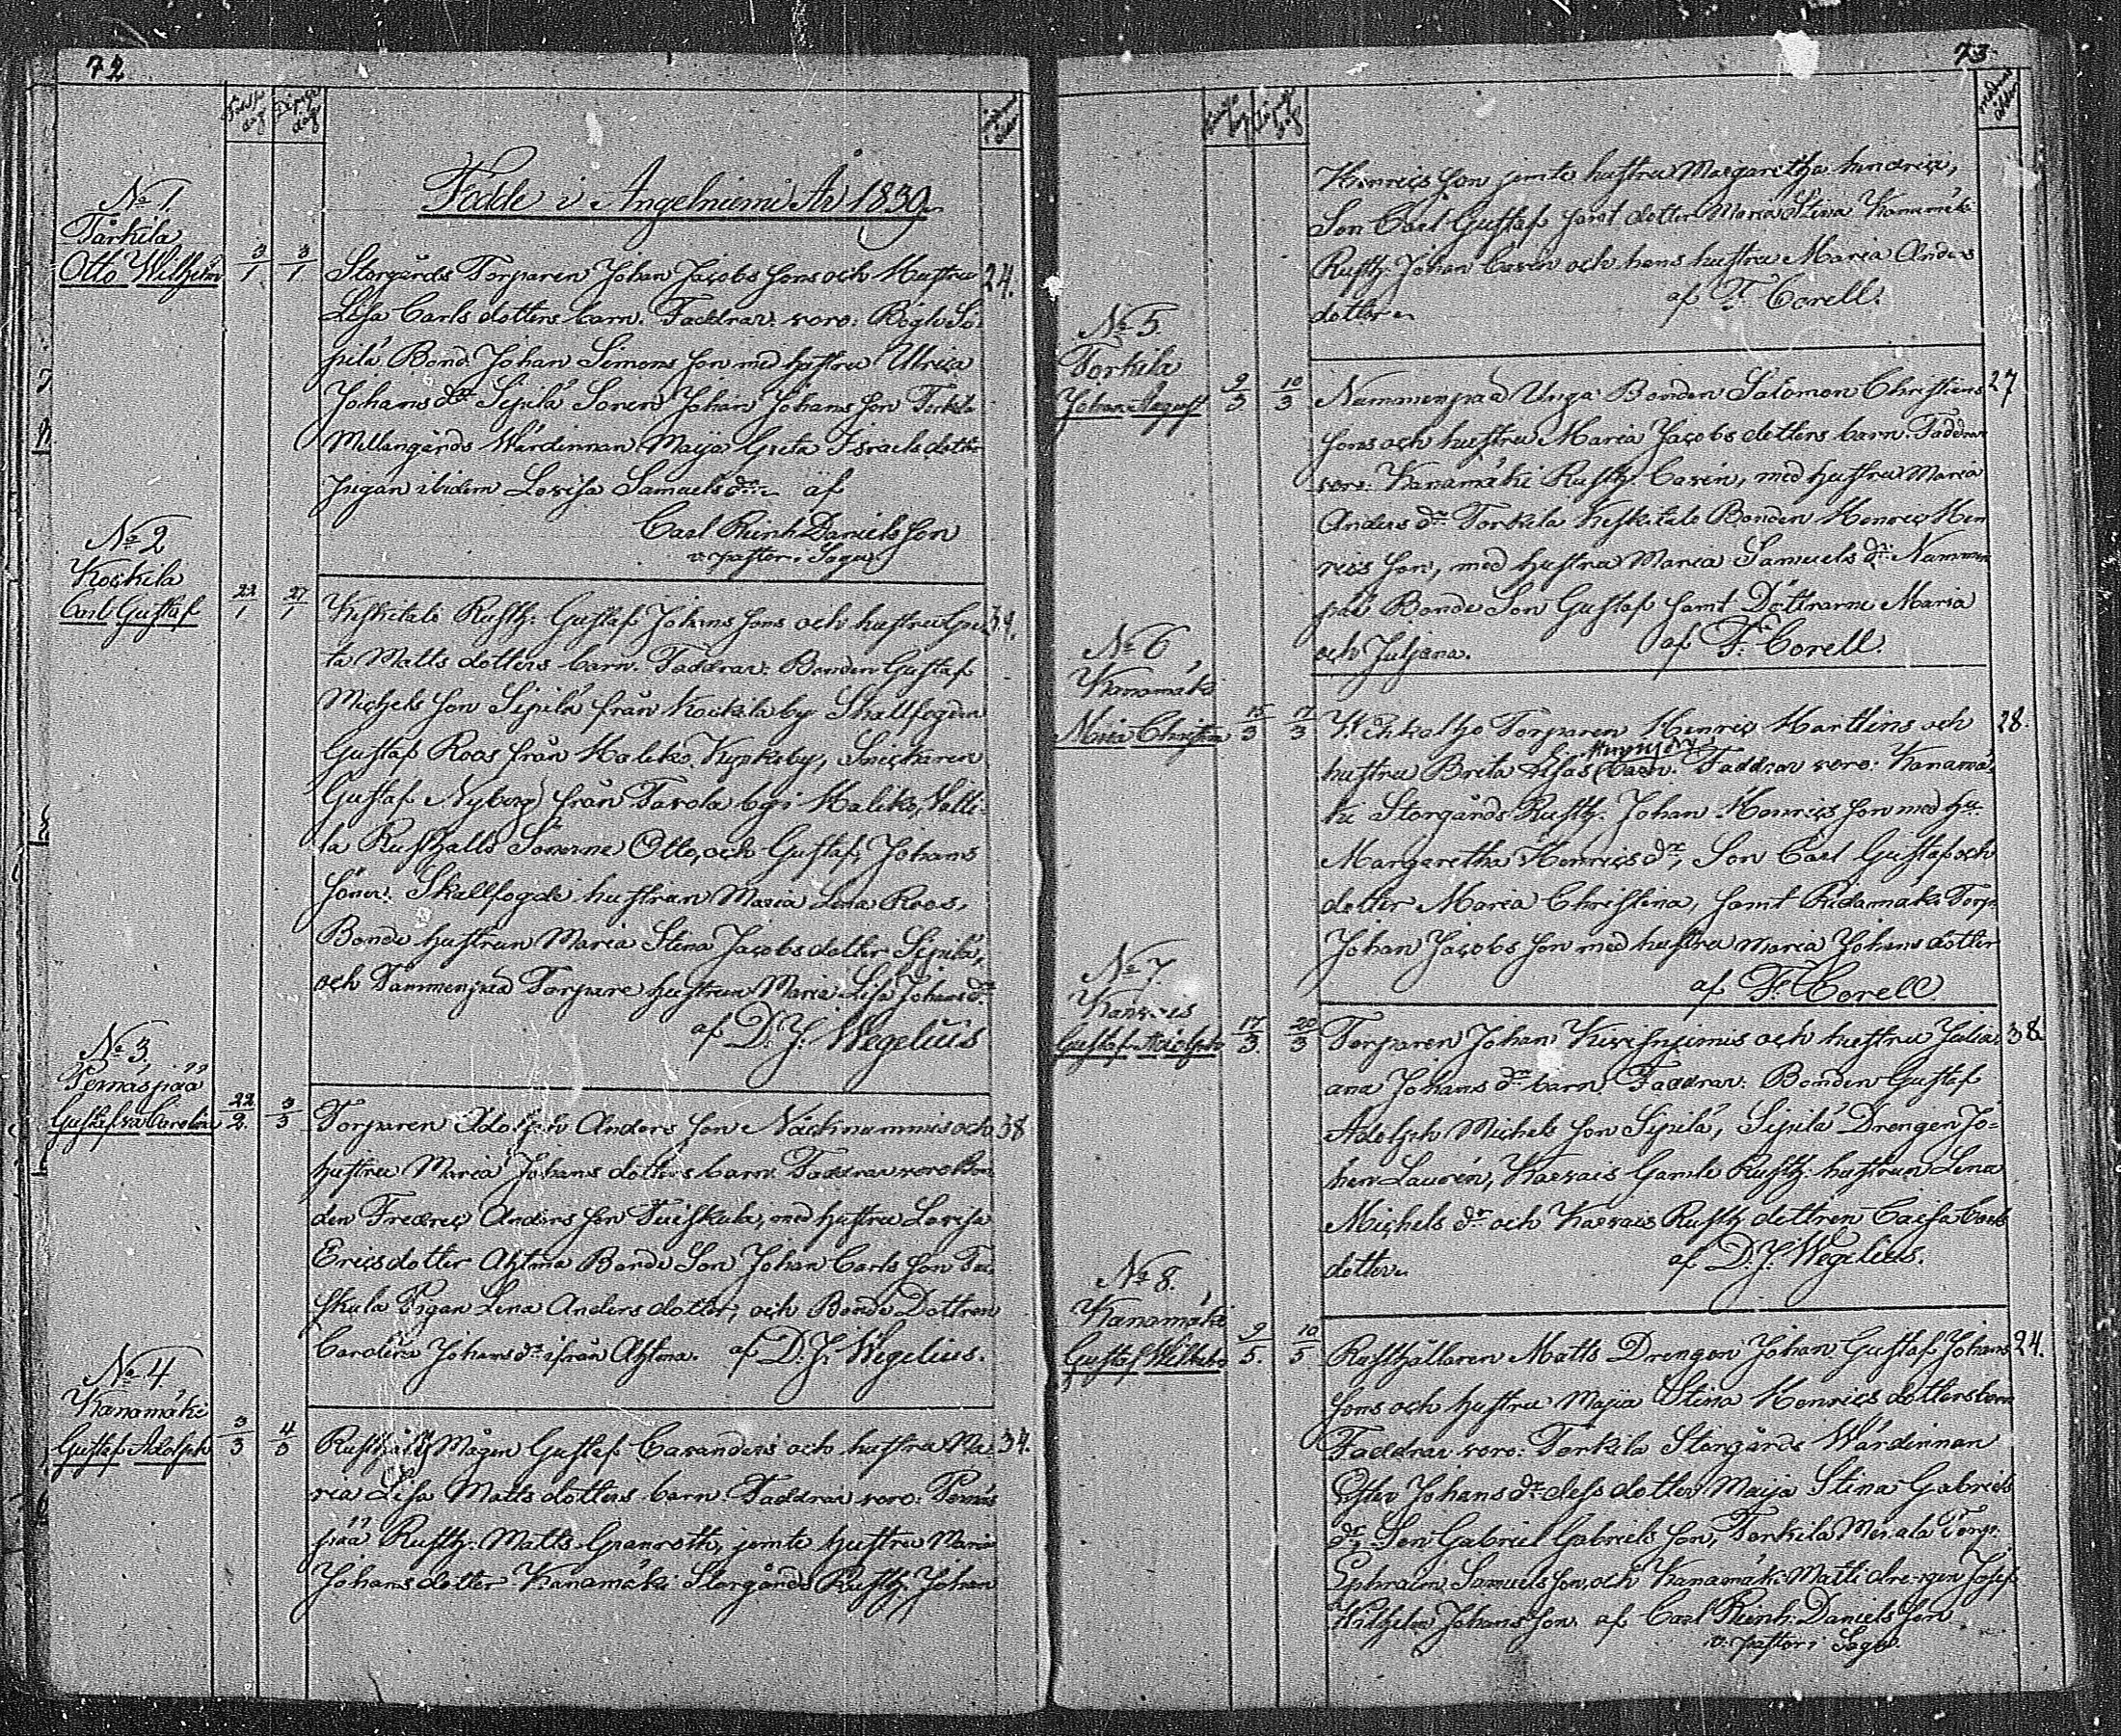 72
Födelse dag
Döpelse dag
Födde i Angelniemi År 1839
No 1.
Tårkila
Otto Wilhelm 3/1 3/1
Storgårds Torparen Johan Jacobs Sons och Hustru 24.
Lisa Carls dotters barn. Faddrar voro: Böglö Si-
pilä Bond. Johan Simons Son med hustru Ulrica
Johans dr Sipilä Sonen Johan Johans Son Torkila
Mellangårds Wärdinnan Maija Greta Israels dotter
pigan ibidem Lovisa Samuels dr af
Carl Reinh Daniels Son
v. pastor i Sagu
No 2
Kockila
Carl Gustaf 22/1 27/1
Keskitalo Rusth: Gustaf Johans Sons och hustru Gre- 34.
ta Matts dotters barn. Faddrar: Bonden Gustaf
Michels Son Sipilä från Kockila by Skallfogden
Gustaf Roos från Haliko, Kumkeby, Snickaren
Gustaf Nyberg från Tavola by i Haliko,
la Rusthålls Sönerne Otto, och Gustaf, Johans
Söner. Skallfogde hustrun Maria Lena Roos,
Bonde hustrun Maria Stina Jacobs dotter Sipilä,
och Tammenpää Torpare hustrun Maria Lisa Johans dr
af D. J. Wegelius
No 3.
Pernäspää
Gustafva Carolina 22/2. 3/3
Torparen Adolph Anders Son Näcknummis och 38
hustru Maria Johans dotters barn. Faddrar voro Bon-
den Fredric Anders Son Tuiskula, med hustru Lovisa
Erics dotter Ahtma Bonde Son Johan Carls Son Tui-
skula Pigan Lena Anders dotter, och Bonde Dottren
Carolina Johans dr ifrån Ahtma. af D. J. Wegelius.
No 4.
Kanamäki
Gustaf Adolph 3/3 4/3
Rusthåll Mågen Gustaf Casanders och hustru Ma- 34.
ria Lisa Matts dotters barn. Faddrar voro: Pernäs
pää Rusth: Matts Granroth, jemte hustru Maria
Johans dotter Kanamäki Storgårds Rusth. Johan
73.
Henrics Son jemte hustru Margaretha hindrics,
Son Carl Gustaf samt dotter Maria Stina Kanamäki
Rusth. Johan Casen och hans hustru Maria Anders
dotter. af F. Corell.
No 5.
Torkila
Johan August 9/3 10/3
Nummenpää Unga Bonden Salomon Christians 27
Sons och hustru Maria Jacobs dotters barn. Faddrar
voro: Kanamäki Rusth. Casén, med hustru Maria
Anders dr Torkila Keskitalo Bonden Henric Hen
rics Son, med hustru Maria Samuels dr. Nummen
pää Bonde Son Gustaf samt Döttrarne Maria
och Juljana. af F. Corell.
No 6
Kanamäki
Maria Christina 15/3 17/3
Torparen Henric Martlins och 28.
hustru Brita Lisas barn. Faddrar voro: Kanamä-
ki Storgårds Rusth. Johan Henrics Son med hu:
Margaretha Henrics dr, Son Carl Gustaf och
dotter Maria Christina, samt Ridamäki Torp.
Johan Jacobs Son med hustru Maria Johans dotter
af F. Corell
No 7.
Karvais
Gustaf Adolph 17/3. 20/3
Torparen Johan Kivisniemis och hustru Juli- 38
ana Johans dr barn. Faddrar: Bonden Gustaf
Adolph Michels Son Sipilä, Sipilä Drengen Jo-
han Laurén, Karvais Gamle Rusth. hustrun Lena
Michels dr och Karvais Rusth dottren Caisa Carls
dotter. af D. J. Wegelius.
No 8.
Kanamäki
Gustaf Wilhelm 9/5. 10/5
Rusthållaren Matts Drengen Johan Gustaf Johans 24.
Sons och hustru Maija Stina Henrics dotters barn
Faddrar voro: Torkila Storgårds Wärdinnan
Johans dr dess dotter Maija Stina Gabriels
dr, Son Gabriel Gabriels Son, Torkila Torp:
Ephraim Samuels Son, och Kanamäki Matti drengen Josef
Wilhelm Johans Son. af Carl Reinh. Daniels Son
v. pastor i Sagu.